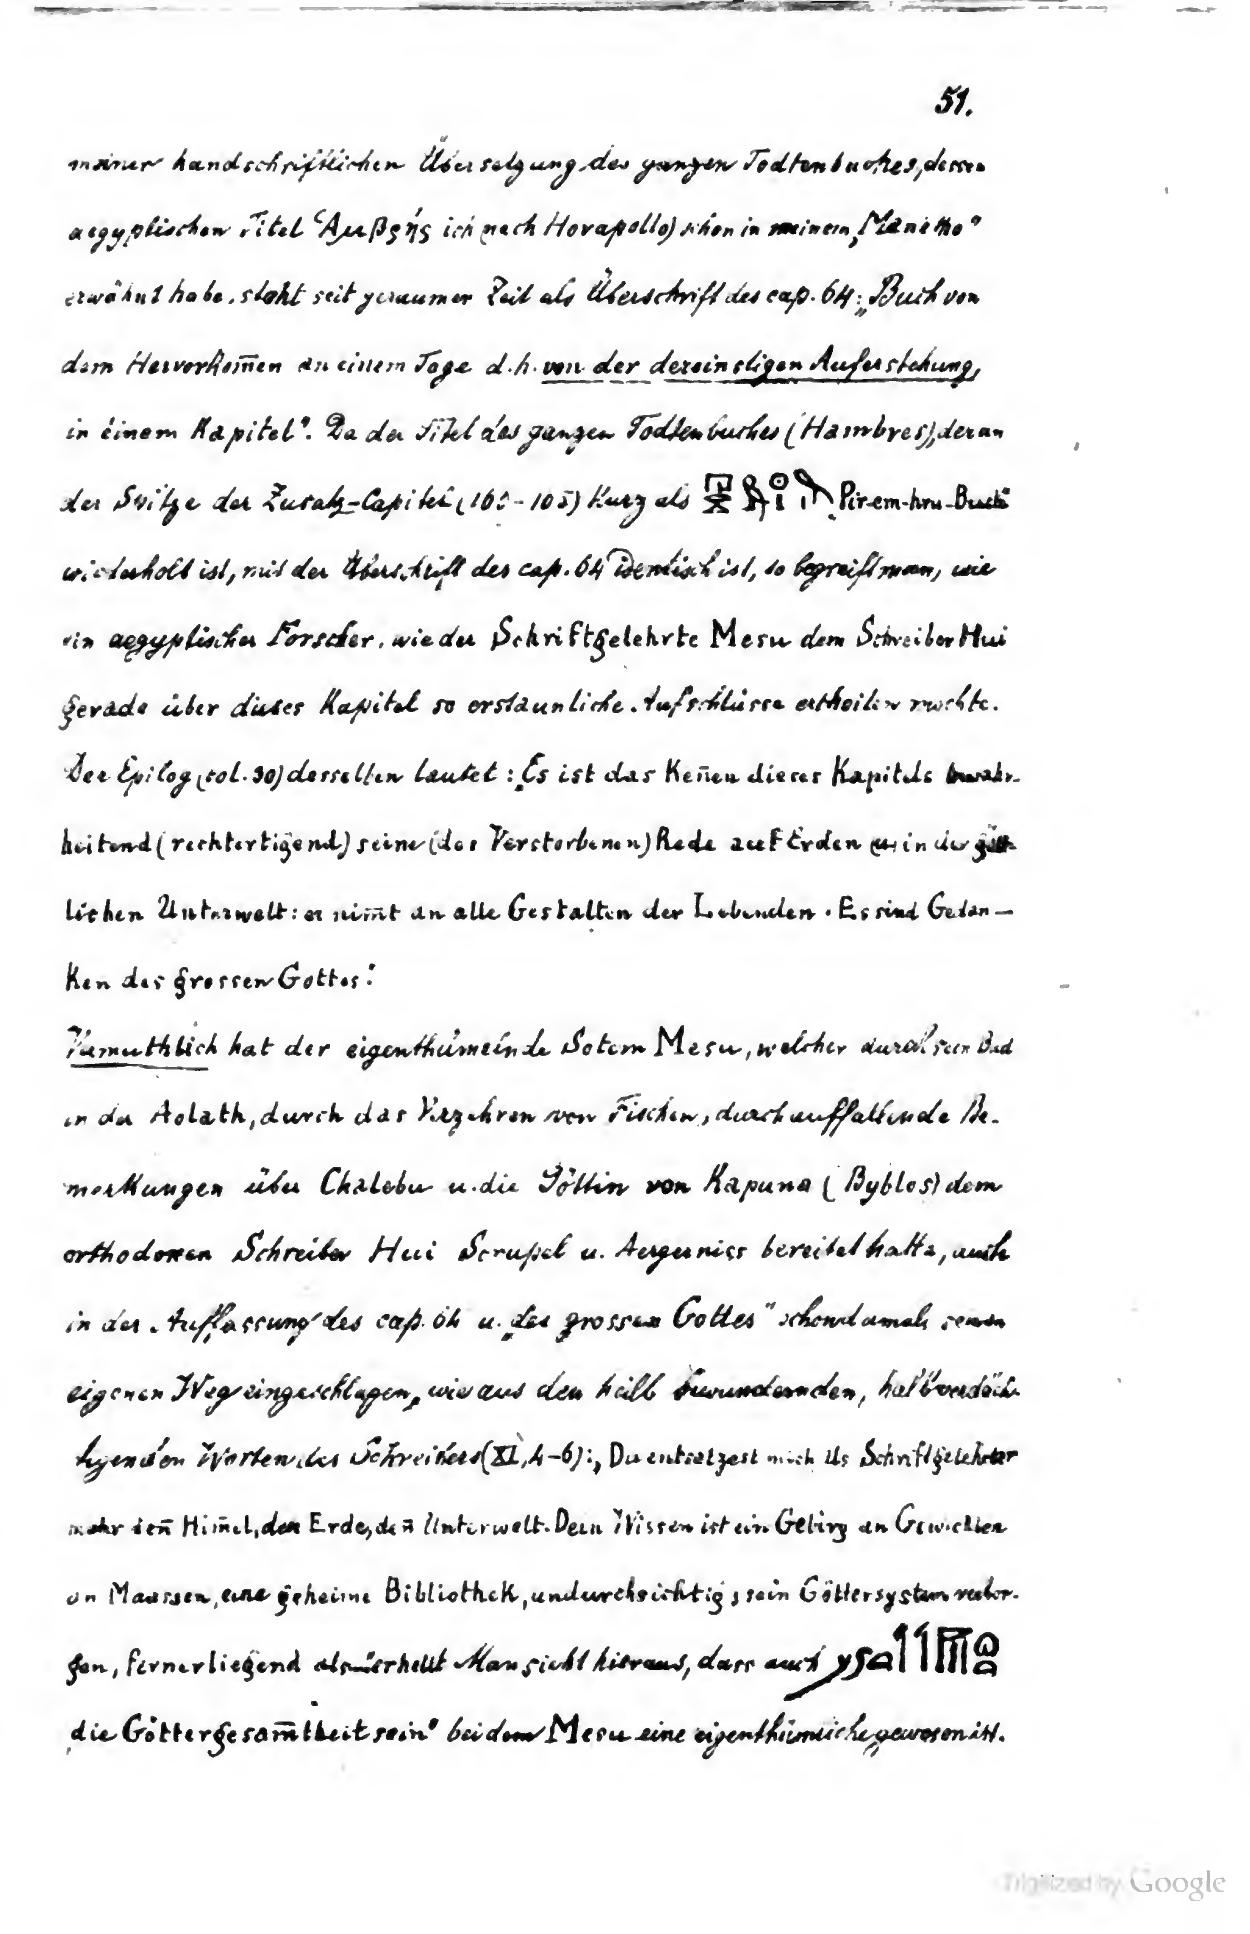 51.
meiner handschriftlichen Übersetzung des ganzen Todtenbuches, dessen
aegyptischen Titel Ἀμβρής ich (nach Horapollo) schon in meinem „Manetho“
erwähnt habe, steht seit geraumer Zeit als Überschrift des cap. 64: „Buch von
dem Hervorkom̅en an einem Tage d.h. von der dereinstigen Auferstehung,
in einem Kapitel“. Da der Titel des ganzen Todtenbuches (Hambres), der an
der Spitze der Zusatz-Capitel kurz als Pir-em-hru-Buch
wiederholt ist, mit der Überschrift des cap. 64 identisch ist, so begreift man, wie
ein aegyptischer Forscher, wie der Schriftgelehrte Mesu dem Schreiber Hui
gerade über dieses Kapitel so erstaunliche Aufschlüsse ertheilen mochte.
Der Epilog (col. 30) desselben lautet: „Es ist das Ken̅en dieses Kapitels bewahr-
heitend (rechtfertigend) seine (des Verstorbenen) Rede auf Erden u. in der gött-
lichen Unterwelt: er nim̅t an alle Gestalten der Lebenden. Es sind Gedan-
ken des grossen Gottes“.
Vermuthlich hat der eigenthümelnde Sotem Mesu, welcher durch sein Bad
in der Aolath, durch das Verzehren von Fischen, durch auffallende Be-
merkungen über Chalebu u. die Göttin von Kapuna (Byblos) dem
orthodoxen Schreiber Hui Scrupel u. Aergerniss bereitet hatte, auch
in der Auffassung des cap. 64 u. „des grossen Gottes“ schon damals seinen
eigenen Weg eingeschlagen, wie aus den halb bewundernden, halb verdäch-
tigenden Worten des Schreibers (XI, 4-6): „Du entsetzest mich als Schriftgelehrter
mehr den̅ Him̅el, den̅ Erde, den̅ Unterwelt. Dein Wissen ist ein Gebirg an Gewichten
an Maassen, eine geheime Bibliothek, undurchsichtig; sein Göttersystem verbor-
gen, fernerliegend als“ erhellt. Man sieht hieraus, dass auch
„die Göttergesam̅theit sein“ bei dem Mesu eine eigenthümliche gewesen ist.
Digitized by Google